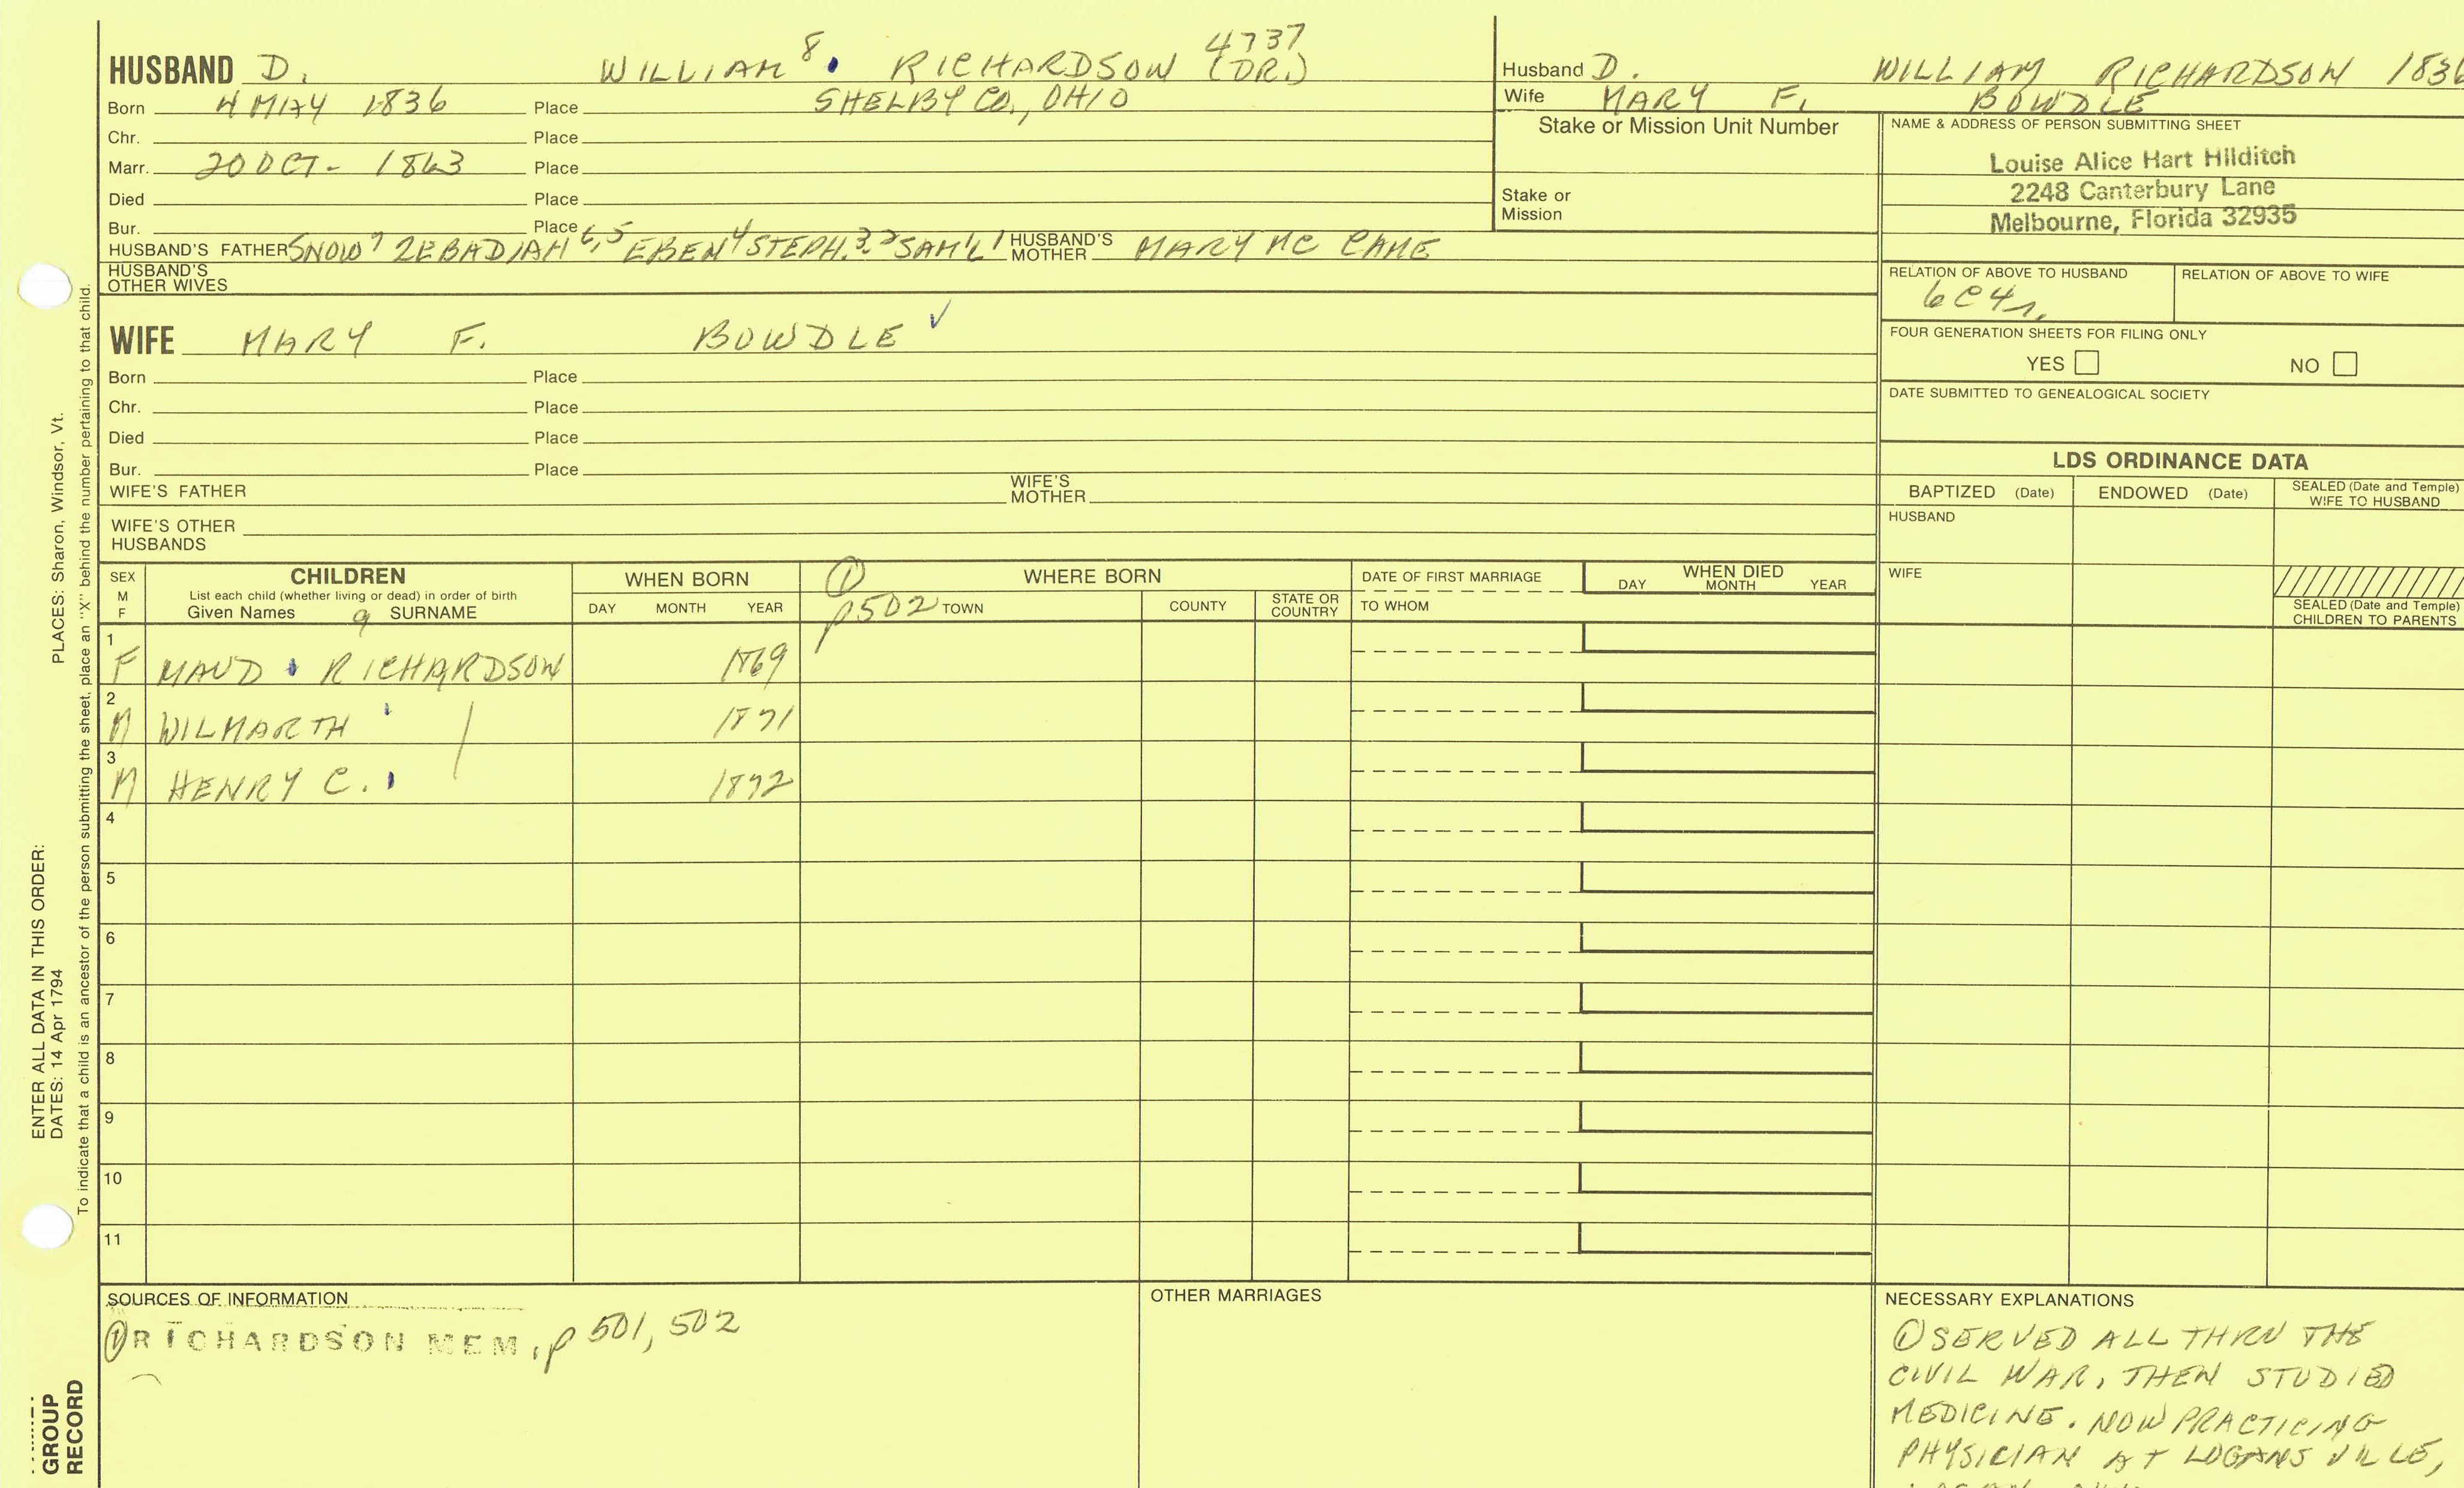 HUSBAND D. WILLIAM 8. RICHARDSON (DR.) 4737
Born 4 MAY 1836 Place SHELBY CO., OHIO
Chr. Place
Marr. 20 OCT - 1863 Place
Died Place
Bur. Place
HUSBAND'S FATHER SNOW 7 ZEBADIAH 6,5 EBEN 4 STEPH. 3,2 SAM'L 1 HUSBAND'S MOTHER MARY MC CAME
HUSBAND'S OTHER WIVES
Husband D. WILLIAM RICHARDSON 1836
Wife MARY F. BOWDLE
Stake or Mission Unit Number
Stake or Mission
NAME & ADDRESS OF PERSON SUBMITTING SHEET
Louise Alice Hart Hilditch
2248 Canterbury Lane
Melbourne, Florida 32935
RELATION OF ABOVE TO HUSBAND RELATION OF ABOVE TO WIFE
6C4r.
FOUR GENERATION SHEETS FOR FILING ONLY
YES NO
DATE SUBMITTED TO GENEALOGICAL SOCIETY
WIFE MARY F. BOWDLE ✓
Born Place
Chr. Place
Died Place
Bur. Place
WIFE'S FATHER WIFE'S MOTHER
WIFE'S OTHER HUSBANDS
LDS ORDINANCE DATA
BAPTIZED (Date) ENDOWED (Date) SEALED (Date and Temple) WIFE TO HUSBAND
HUSBAND
WIFE
SEALED (Date and Temple) CHILDREN TO PARENTS
SEX M F CHILDREN WHEN BORN ① WHERE BORN DATE OF FIRST MARRIAGE WHEN DIED
List each child (whether living or dead) in order of birth DAY MONTH YEAR p502 TOWN COUNTY STATE OR COUNTRY TO WHOM DAY MONTH YEAR
Given Names 9 SURNAME
1 F MAUD RICHARDSON 1869
2 M WILMARTH 1871
3 M HENRY C. 1872
4
5
6
7
8
9
10
11
SOURCES OF INFORMATION
① RICHARDSON MEM, p 501, 502
OTHER MARRIAGES
NECESSARY EXPLANATIONS
① SERVED ALL THRU THE
CIVIL WAR, THEN STUDIED
MEDICINE. NOW PRACTICING
PHYSICIAN AT LOGANSVILLE,
ENTER ALL DATA IN THIS ORDER:
DATES: 14 Apr 1794 PLACES: Sharon, Windsor, Vt.
To indicate that a child is an ancestor of the person submitting the sheet, place an "X" behind the number pertaining to that child.
GROUP
RECORD